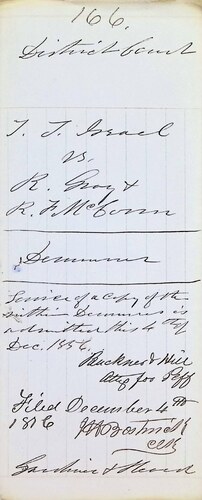 166.
District Court
T. J. Israel
vs.
R. Gray &
R. F. McConn
Demurrer
Service of a copy of the
within Demurrer is
admitted this 4th of
Dec. 1856.
Buckner & Hill
Attys for Plff
Filed December 4th
1856
Clk
Gardiner &